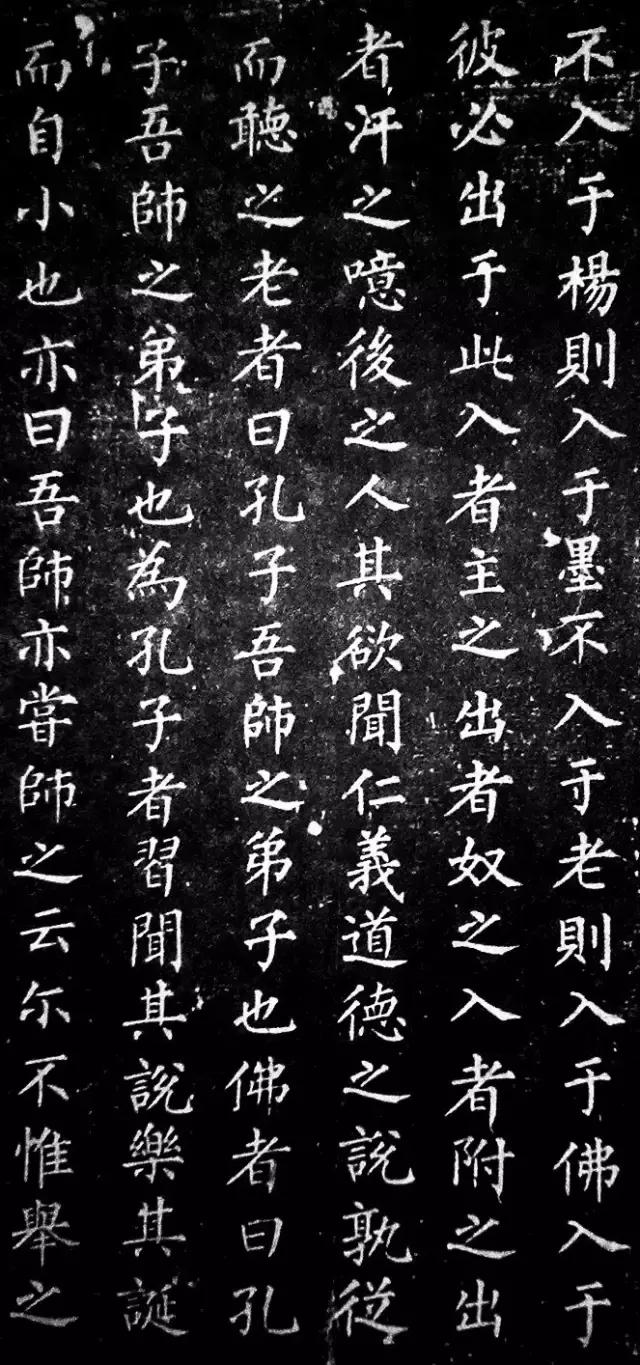 不入于楊則入于墨不入于老則入于佛入于
彼必出于此入者主之出者奴之入者附之出
者汙之噫後之人其欲聞仁義道德之說孰從
而聽之老者曰孔子吾師之弟子也佛者曰孔
子吾師之弟子也為孔子者習聞其說樂其誕
而自小也亦曰吾師亦甞師之云尓不惟舉之